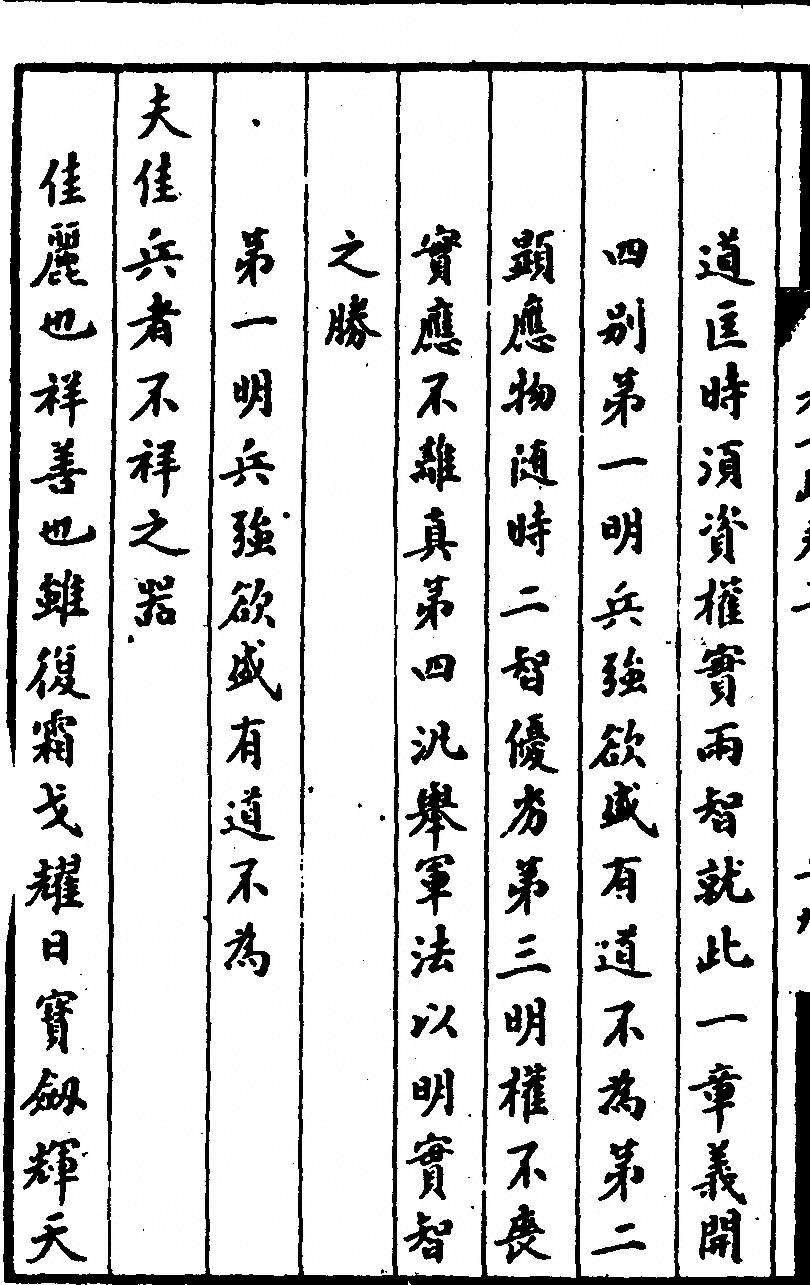 道匡時須資權實兩智就此一章義開
四別第一明兵強欲盛有道不為第二
顯應物随時二智優劣第三明權不喪
實應不離真第四汎舉軍法以明實智
之勝
第一明兵強欲盛有道不為
夫佳兵者不祥之器
佳麗也祥善也雖復霜戈耀日寶劔輝天